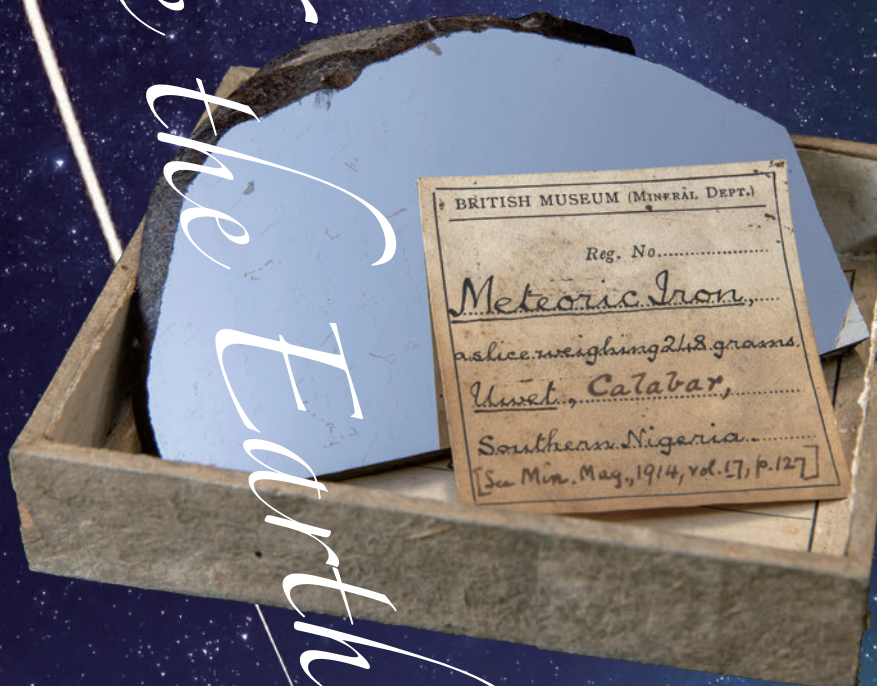 the Earth
BRITISH MUSEUM (MINERAL DEPT.)
Reg. No.
Meteoric Iron,
a slice weighing 248 grams.
Uwet, Calabar,
Southern Nigeria
[See Min. Mag., 1914, vol. 17, p. 127]